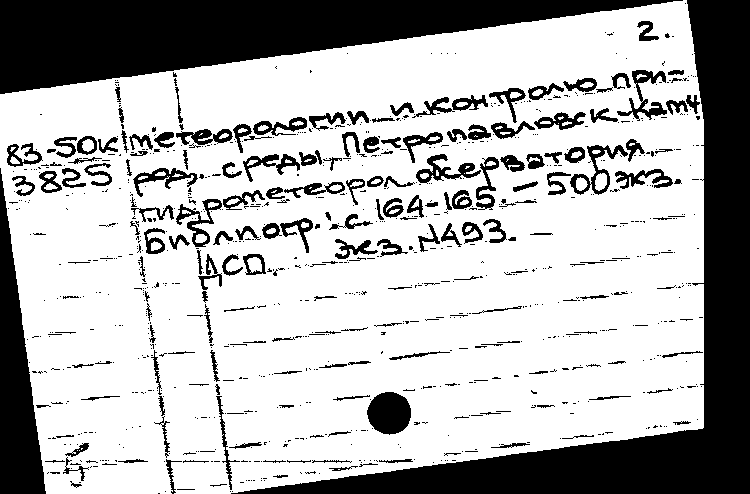 2.
83-50к метеорологии и контролю при-
3825 род. среды, Петропавловск-Камч.
гидрометеорол. обсерватория.
Библиогр.: с. 164-165. — 500 экз.
ДСП. Экз. N493.
5